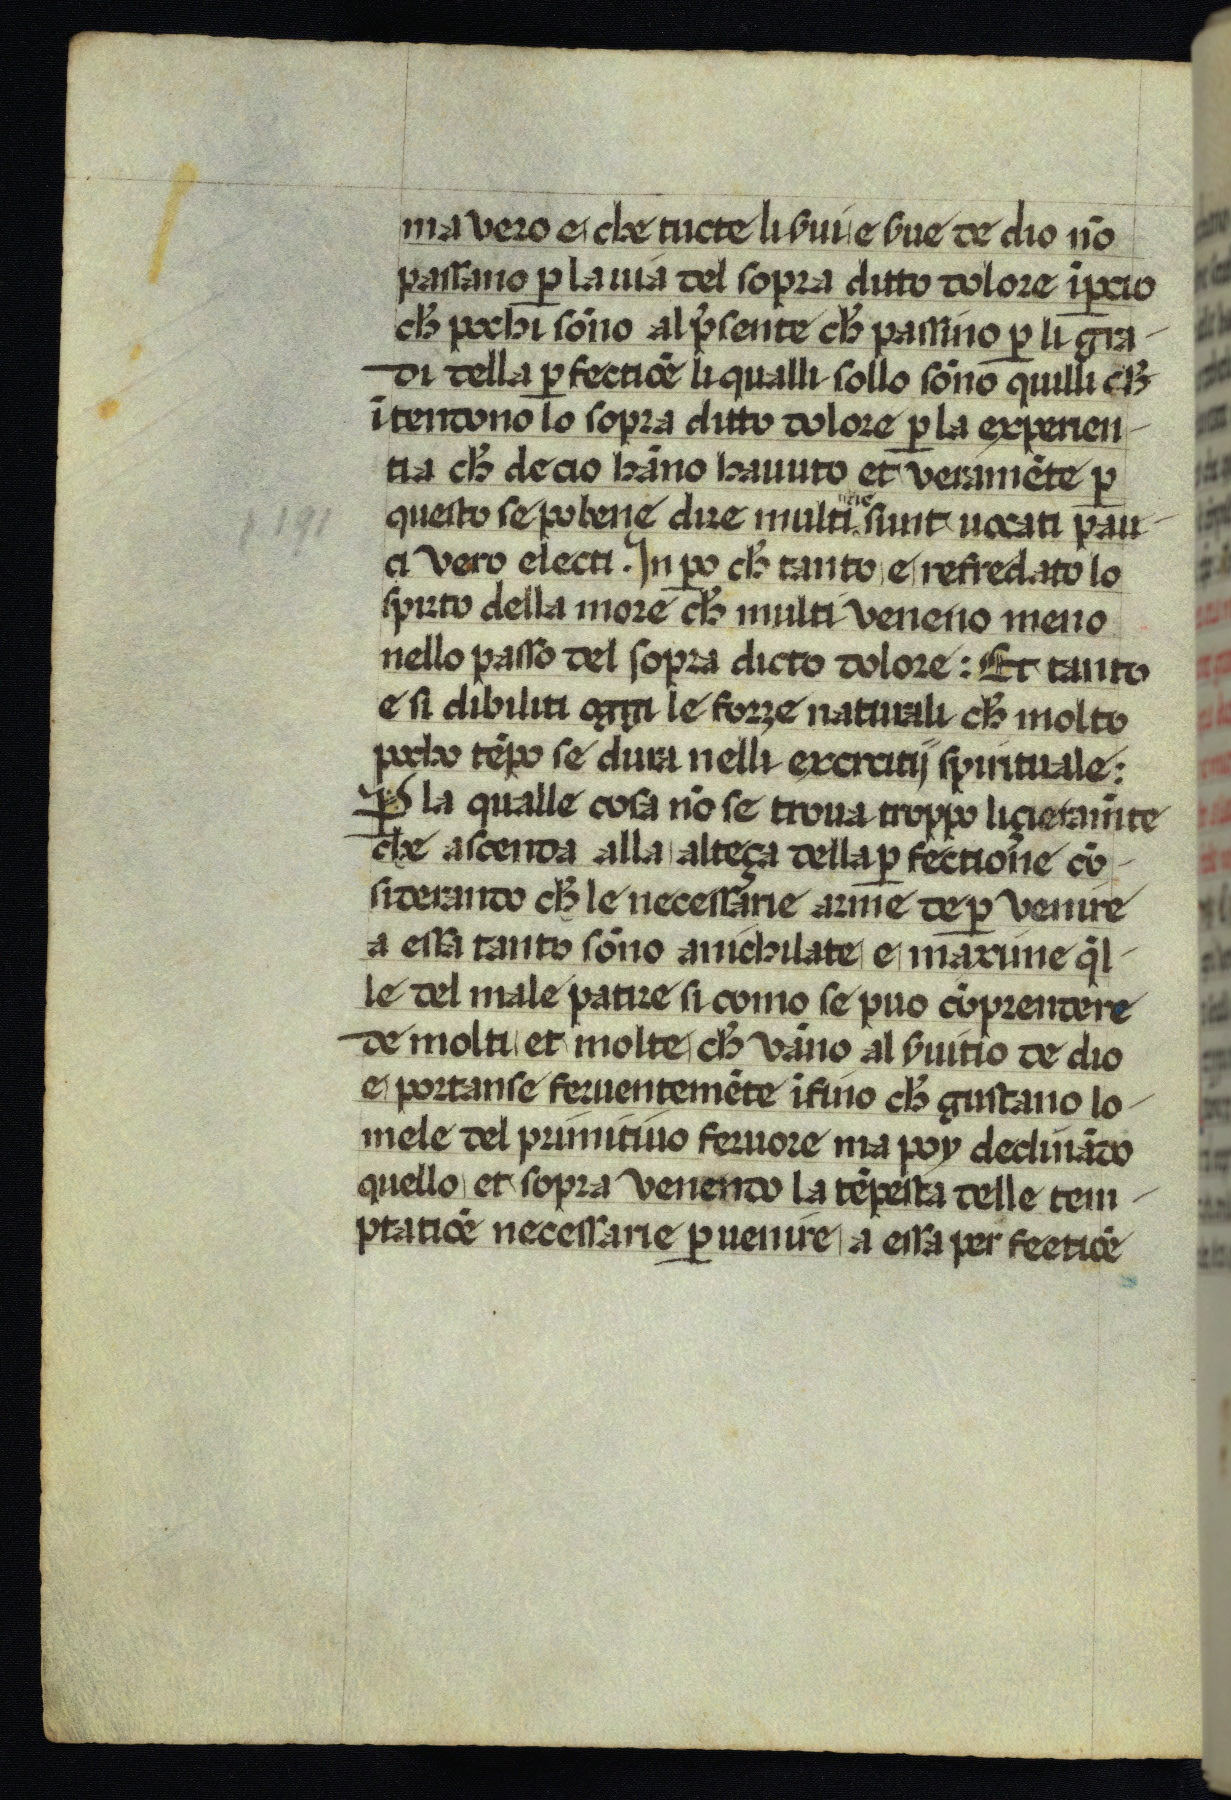 ma vero e che tucte li ẜui e ẜue de dio nō
passano ꝑ la uia del sopra ditto dolore īꝑcio
cħ pochi sōno al p̄sente cħ passino ꝑ li gra-
di della ꝑfectiōe li qualli sollo sōno quilli cħ
ītendono lo sopra ditto dolore ꝑ la experien-
tia cħ de cio hāno hauuto et veramēte ꝑ
questo se po bene dire multi sunt uocati pau-
ci vero electi. In ꝑo cħ tanto e refredato lo
spirto della more cħ multi veneno meno
nello passo del sopra dicto dolore: Et tanto
e si dibiliti oggi le forze naturali cħ molto
pocho tēpo se dura nelli excrcitij spirituale:
ꝑ la qualle cosa nō se troua troppo ligieramīte
che ascenda alla alteça della ꝑfectione cō-
siderando cħ le necessarie arme de ꝑvenire
a essa tanto sōno anichilate e maxime q̄l-
le del male patire si como se puo cōprendere
de molti et molte cħ vāno al ẜuitio de dio
e portanse feruentemēte īfino cħ gustano lo-
mele del primitiuo feruore ma poy declināدo
quello et sopra venendo la tēpesta delle tem-
ptatiōe necessarie ꝑuenire a essa per feetiōe